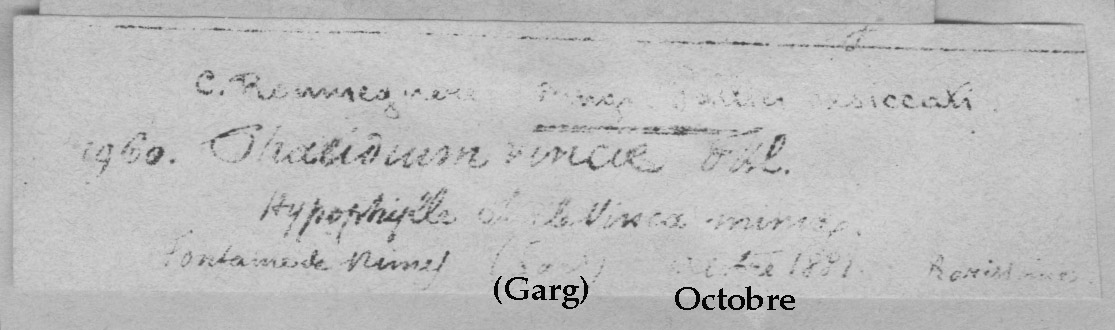 C. Roumeguère Fungi Gallici exsiccati
1960. Phalidium vincae
Hypophylle de Vinca minor.
Fontaine de Nimes (Gard) Octobre 1881.
(Garg) Octobre